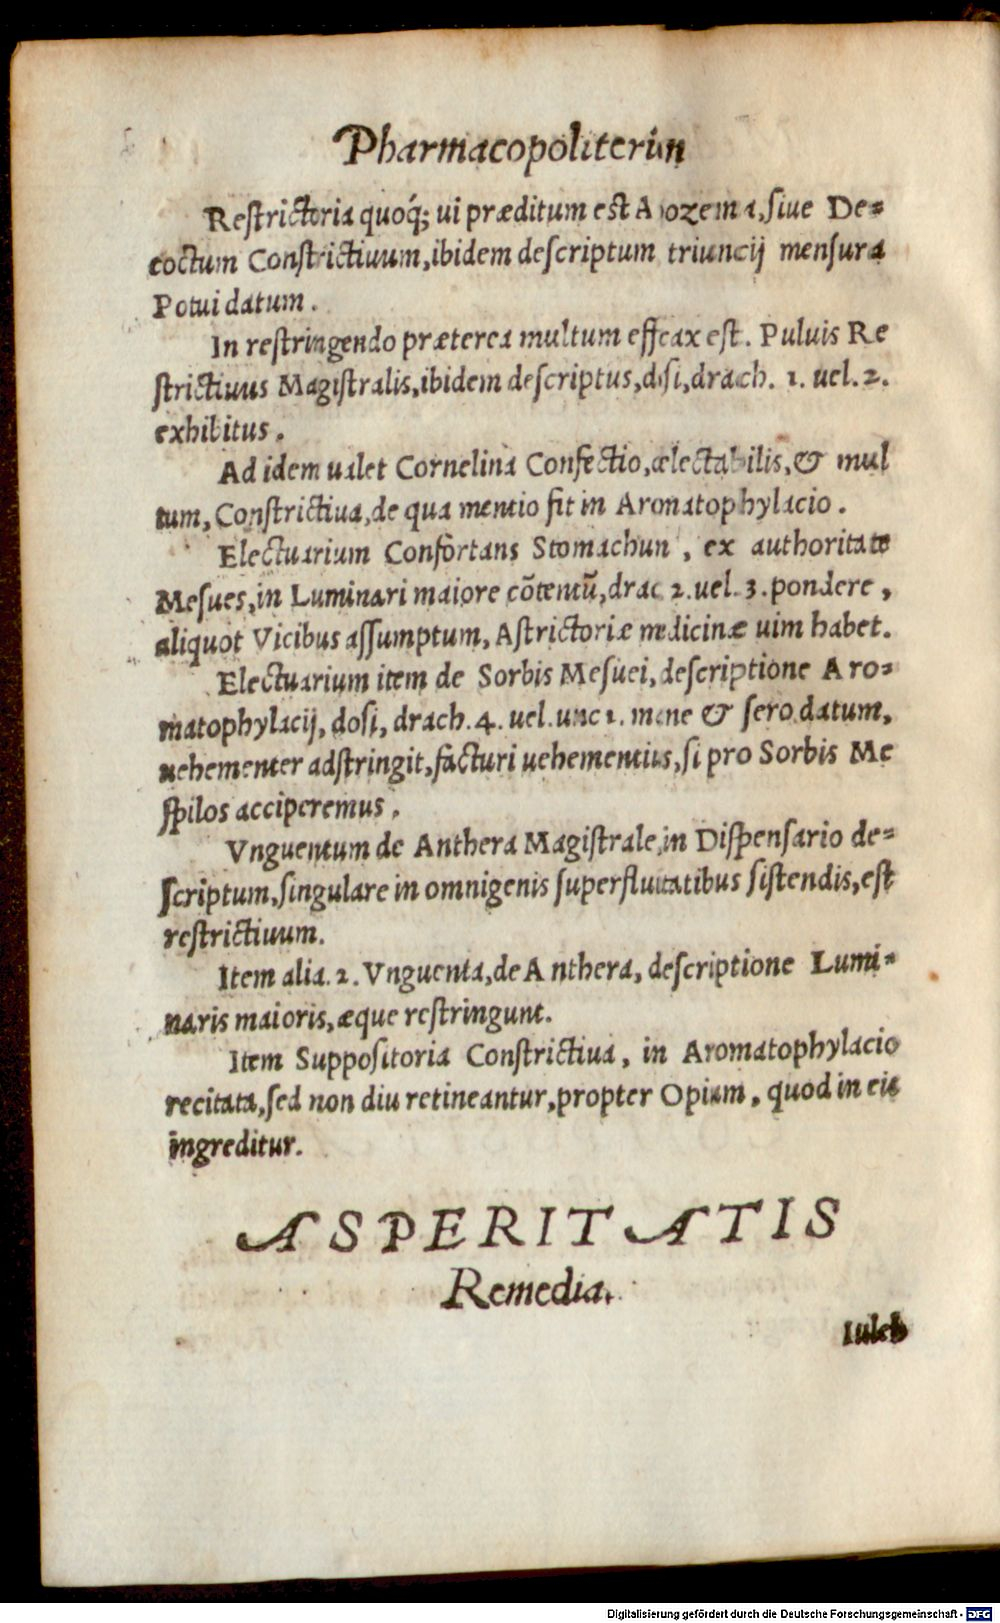 Pharmacopoliteriùn
Reſtrictoria quoq́; ui præditum est Apozema, ſiue De=
coctum Conſtrictiuum, ibidem deſcriptum triuncij menſura
Potui datum.
In reſtringendo præterea multum efficax eſt. Puluis Re
ſtrictiuus Magiſtralis, ibidem deſcriptus, doſi, drach. 1. uel. 2.
exhibitus.
Ad idem ualet Cornelina Confectio, delectabilis, & mul
tum, Conſtrictiua, de qua mentio fit in Aromatophylacio.
Electuarium Confortans Stomachum, ex authoritate
Meſues, in Luminari maiore cõtentũ, drac 2. uel. 3. pondere,
aliquot Vicibus aſſumptum, Aſtrictoriæ medicinæ uim habet.
Electuarium item de Sorbis Meſuei, deſcriptione Aro=
matophylacij, doſi, drach. 4. uel. unc 1. mane & ſero datum,
uehementer adſtringit, facturi uehementius, ſi pro Sorbis Me
ſpilos acciperemus.
Vnguentum de Anthera Magiſtrale, in Diſpenſario de=
ſcriptum, ſingulare in omnigenis ſuperfluitatibus ſiſtendis, eſt
reſtrictiuum.
Item alia. 2. Vnguenta, de Anthera, deſcriptione Lumi=
naris maioris, æque reſtringunt.
Item Suppoſitoria Conſtrictiua, in Aromatophylacio
recitata, ſed non diu retineantur, propter Opium, quod in eis
ingreditur.
ASPERITATIS
Remedia.
Iuleb
Digitalisierung gefördert durch die Deutsche Forschungsgemeinschaft - DFG